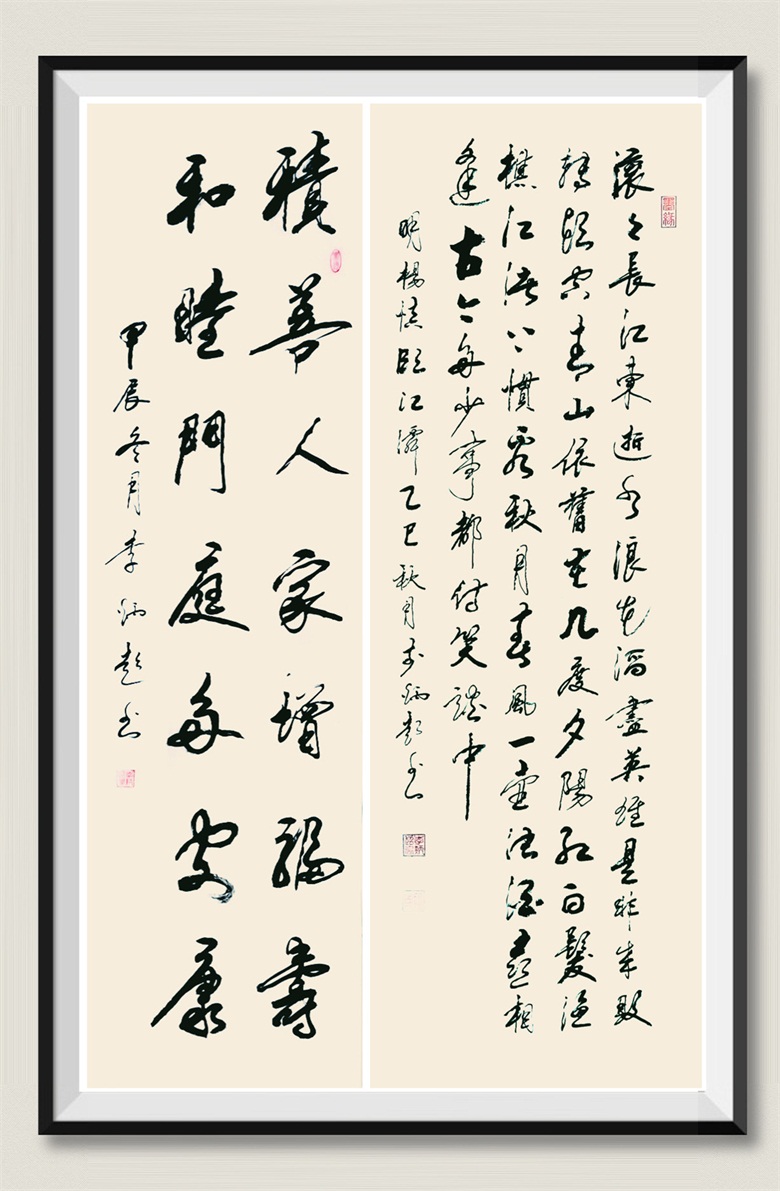 滚々長江東逝水浪花滔盡英雄是非成敗
轉頭空青山依舊在几度夕陽红白髮渔
樵江渚上慣看秋月春風一壶浊酒喜相
逢古今多少事都付笑談中
明楊慎臨江僊乙巳秋月李炳书
積善人家增福壽
和睦門庭多安康
甲辰冬月李炳书